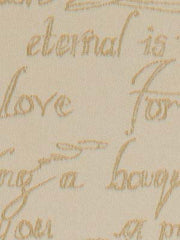 eternal is
love For
ng a bouq
you a p